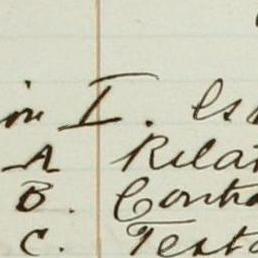 on I. Es
A Relat
B. Contra
C. Testa